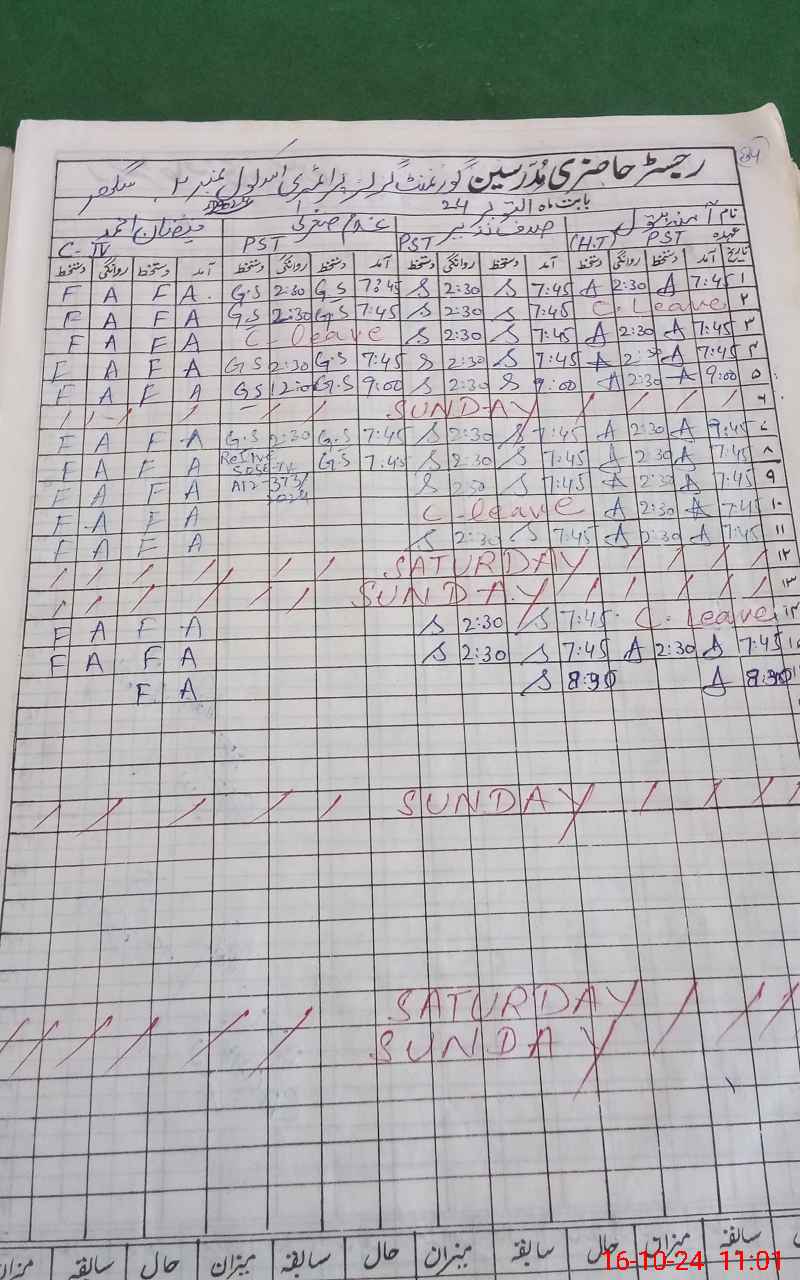 84
رجسٹر حاضری مُدَرسین گورنمنٹ گرلز پرائمری اسکول نمبر ۲ سکھر
بابت ماہ اکتوبر 24
نام آمنہ بتول صدف نذیر غلام صغریٰ فیضان احمد
عہدہ PST (H.T) PST PST C-IV
تاریخ آمد دستخط روانگی دستخط آمد دستخط روانگی دستخط آمد دستخط روانگی دستخط آمد دستخط روانگی دستخط
۱ 7:45 A 2:30 A 7:45 S 2:30 S 7:45 G.S 2:30 G.S A F A F
۲ C. Leave 7:45 S 2:30 S 7:45 G.S 2:30 G.S A F A F
۳ 7:45 A 2:30 A 7:45 S 2:30 S C- leave A F A F
۴ 7:45 A 2:30 A 7:45 S 2:30 S 7:45 G.S 2:30 G.S A F A F
۵ 9:00 A 2:30 A 9:00 S 2:30 S 9:00 G.S 12:00 G.S A F A F
۶ SUNDAY
۷ 7:45 A 2:30 A 7:45 S 2:30 S 7:45 G.S 2:30 G.S A F A F
۸ 7:45 A 2:30 A 7:45 S 2:30 S 7:45 G.S A F A F
۹ 7:45 A 2:30 A 7:45 S 2:30 S A F A F
۱۰ 7:45 A 2:30 A C-leave A F A F
۱۱ 7:45 A 2:30 A 7:45 S 2:30 S A F A F
۱۲ SATURDAY
۱۳ SUNDAY
۱۴ C. Leave 7:45 S 2:30 S A F A F
7:45 A 2:30 A 7:45 S 2:30 S A F A F
8:30 A 8:30 S A F
SUNDAY
SATURDAY
SUNDAY
سابقہ میزان حال سابقہ میزان حال سابقہ میزان حال سابقہ میزان
16-10-24 11:01